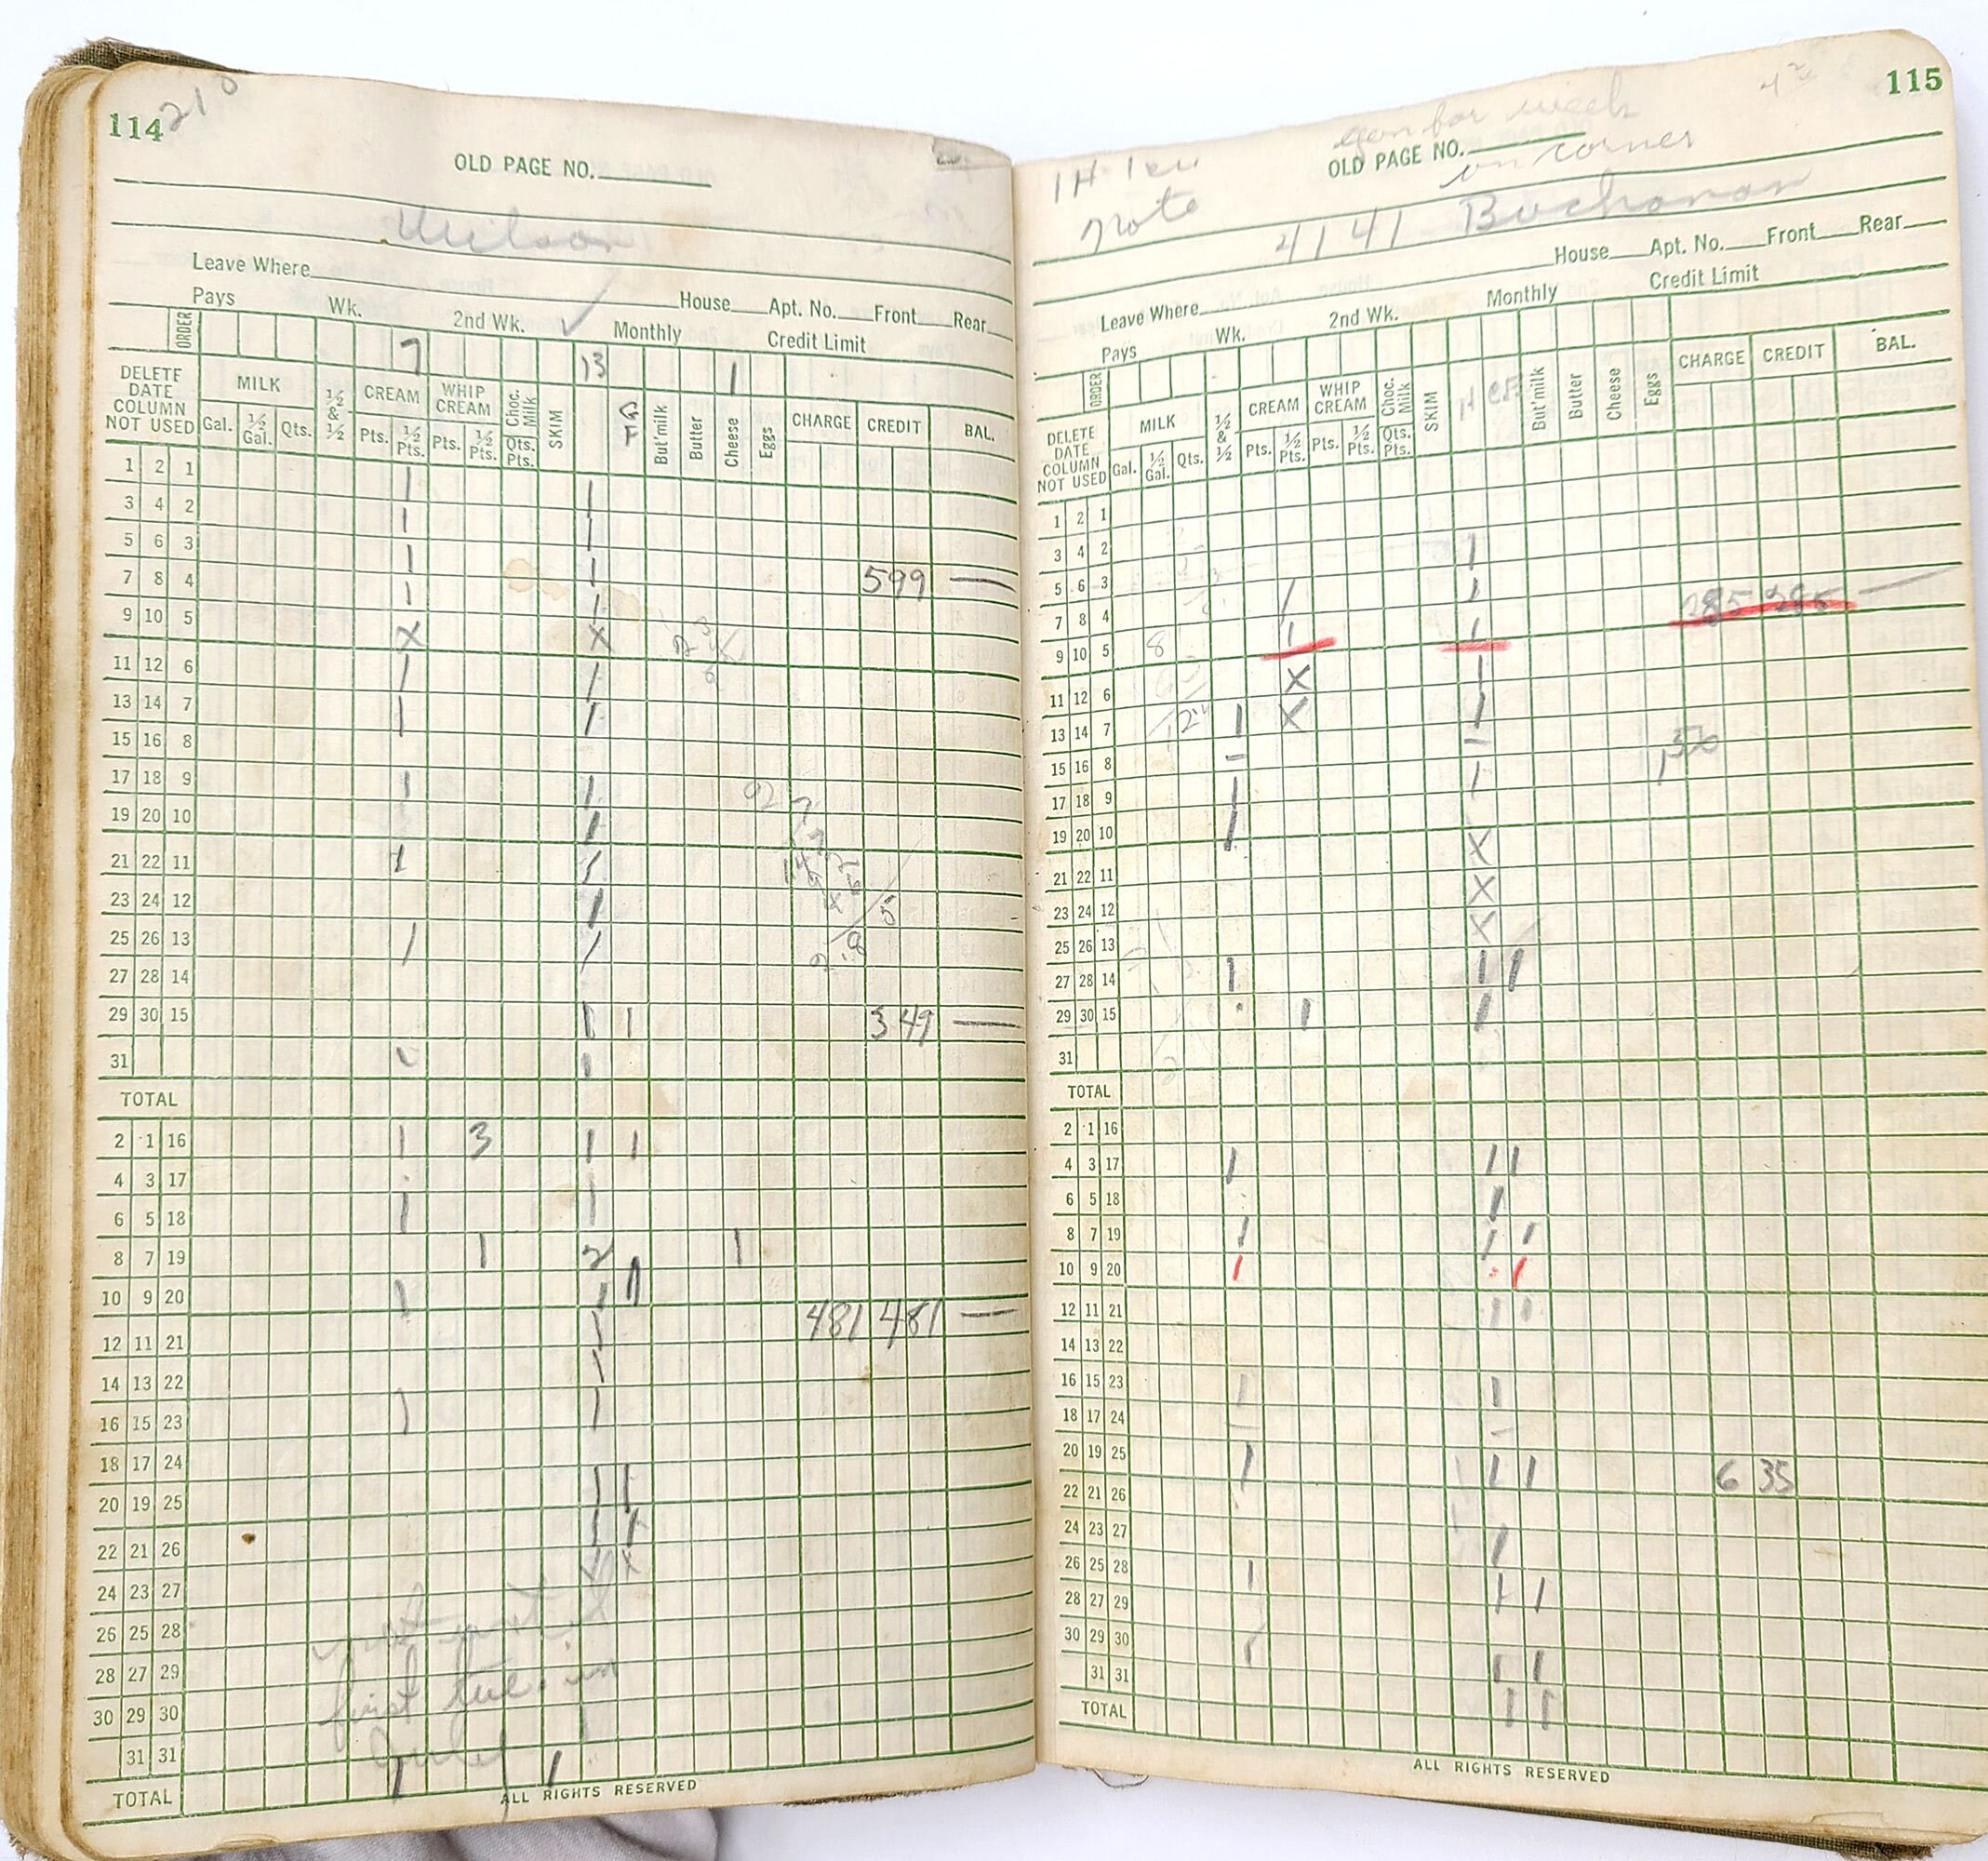 114 210
OLD PAGE NO.
Wilson
Leave Where
House Apt. No. Front Rear
Pays Wk. 2nd Wk. ✓ Monthly Credit Limit
ORDER 7 13 1
DELETE DATE COLUMN NOT USED MILK Gal. ½ Gal. Qts. ½ & ½ CREAM Pts. ½ Pts. WHIP CREAM Pts. ½ Pts. Choc. Milk Qts. Pts. SKIM GF But'milk Butter Cheese Eggs CHARGE CREDIT BAL.
1 2 1 1
3 4 2 1 1
5 6 3 1 1
7 8 4 1 1 599 —
9 10 5 X X
11 12 6 1 1
13 14 7 1 1
15 16 8
17 18 9 1 1
19 20 10 1
21 22 11 1 1
23 24 12 1
25 26 13 1 1
27 28 14
29 30 15 1 1 349 —
31 1
TOTAL
2 1 16 1 3 1 1
4 3 17
6 5 18 1 1
8 7 19 1 2 1
10 9 20 1 1 1
12 11 21 1 481 481 —
14 13 22 1
16 15 23 1 1
18 17 24
20 19 25 1 1
22 21 26 1 1
24 23 27 X X
26 25 28
28 27 29 first tue. in
30 29 30 July
31 31 1 1
TOTAL
ALL RIGHTS RESERVED
115
gon for week
OLD PAGE NO.
on corner
Note
4141 Buchanan
House Apt. No. Front Rear
Leave Where
Pays Wk. 2nd Wk. Monthly Credit Limit
ORDER
DELETE DATE COLUMN NOT USED MILK Gal. ½ Gal. Qts. ½ & ½ CREAM Pts. ½ Pts. WHIP CREAM Pts. ½ Pts. Choc. Milk Qts. Pts. SKIM H But'milk Butter Cheese Eggs CHARGE CREDIT BAL.
1 2 1
3 4 2 1
5 6 3 1 1
7 8 4 1 1 285 285 —
9 10 5 8 X 1
11 12 6 X 1
13 14 7 1
15 16 8
17 18 9 1 1
19 20 10 1 X
21 22 11 X
23 24 12 X
25 26 13
27 28 14 1 1 1
29 30 15 1 1
31
TOTAL
2 1 16
4 3 17 1 1 1
6 5 18 1
8 7 19 1 1 1
10 9 20 1 1
12 11 21 1 1
14 13 22
16 15 23 1 1
18 17 24
20 19 25 1 1 1 6 35
22 21 26
24 23 27 1
26 25 28 1
28 27 29 1 1
30 29 30 1
31 31 1 1
TOTAL 1 1
ALL RIGHTS RESERVED